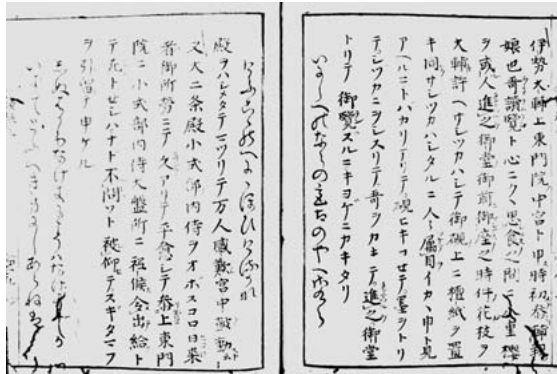 伊勢大輔上東門院中宮ト申時初参輔親
娘也哥讀覽ト心ニクヽ思食ノ間ニ八重櫻
ヲ或人進之御堂御前御座之時件花枝ヲ
大輔許ヘサシツカハシテ御硯上ニ檀紙ヲ置
キ同サシツカハシタルニ人々属目イカヽ申ト見
アヘルニトバカリアリテ硯ヒキヨセテ墨ヲトリ
テシツカニヲシスリテ哥ヲカキテ進之御堂
トリテ御覽スルニキヨゲニカキタリ
いにしへのならのみやこのやへさくら
けふこゝのへににほひぬるかな
殿ヲハシメタテマツリテ万人感歎宮中鼓動
又大二条殿小式部内侍ヲオボスコロ日来
者御所労ニテ久アリテ平愈シテ参上東門
院ニ小式部内侍大盤所ニ祗候令出給ト
テ死トせシハナド不問ソト被仰テスギタマフ
ヲ引留テ申ケル